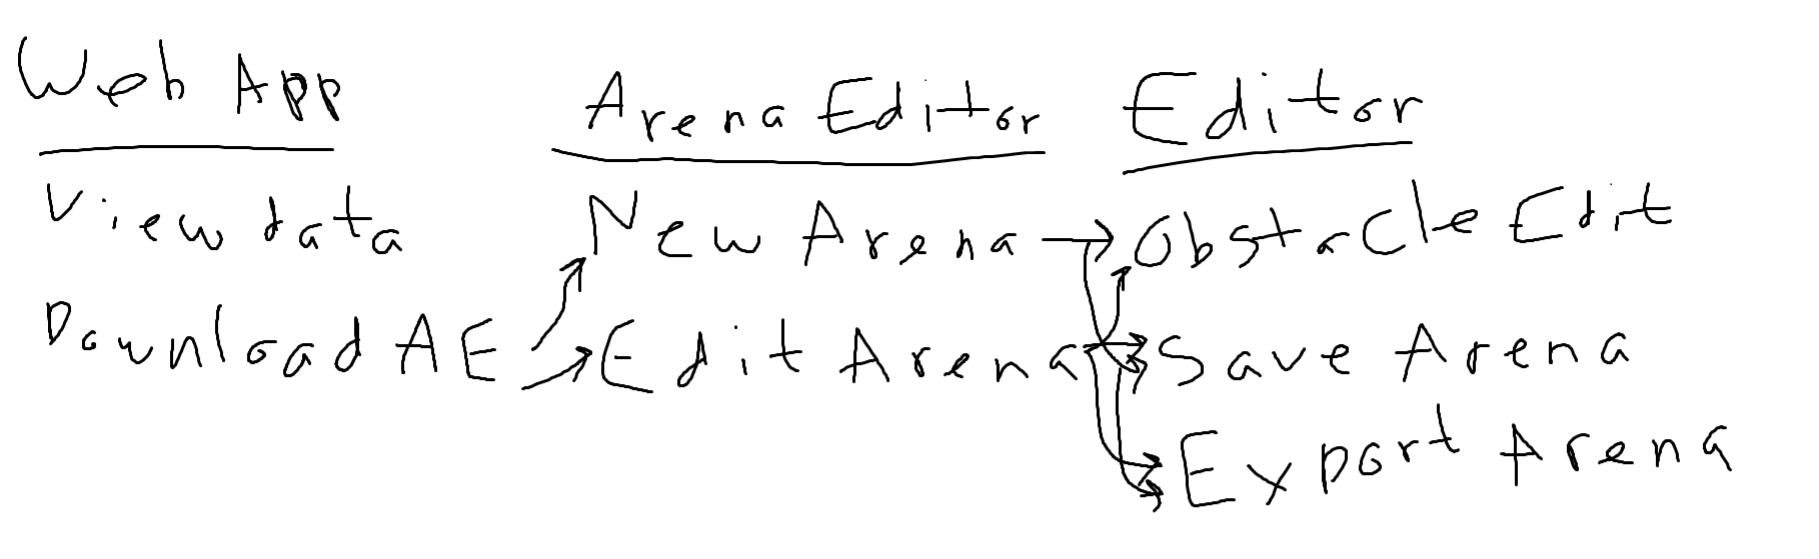 Web App
View data
Download AE
Arena Editor
New Arena
Edit Arena
Editor
Obstacle Edit
Save Arena
Export Arena